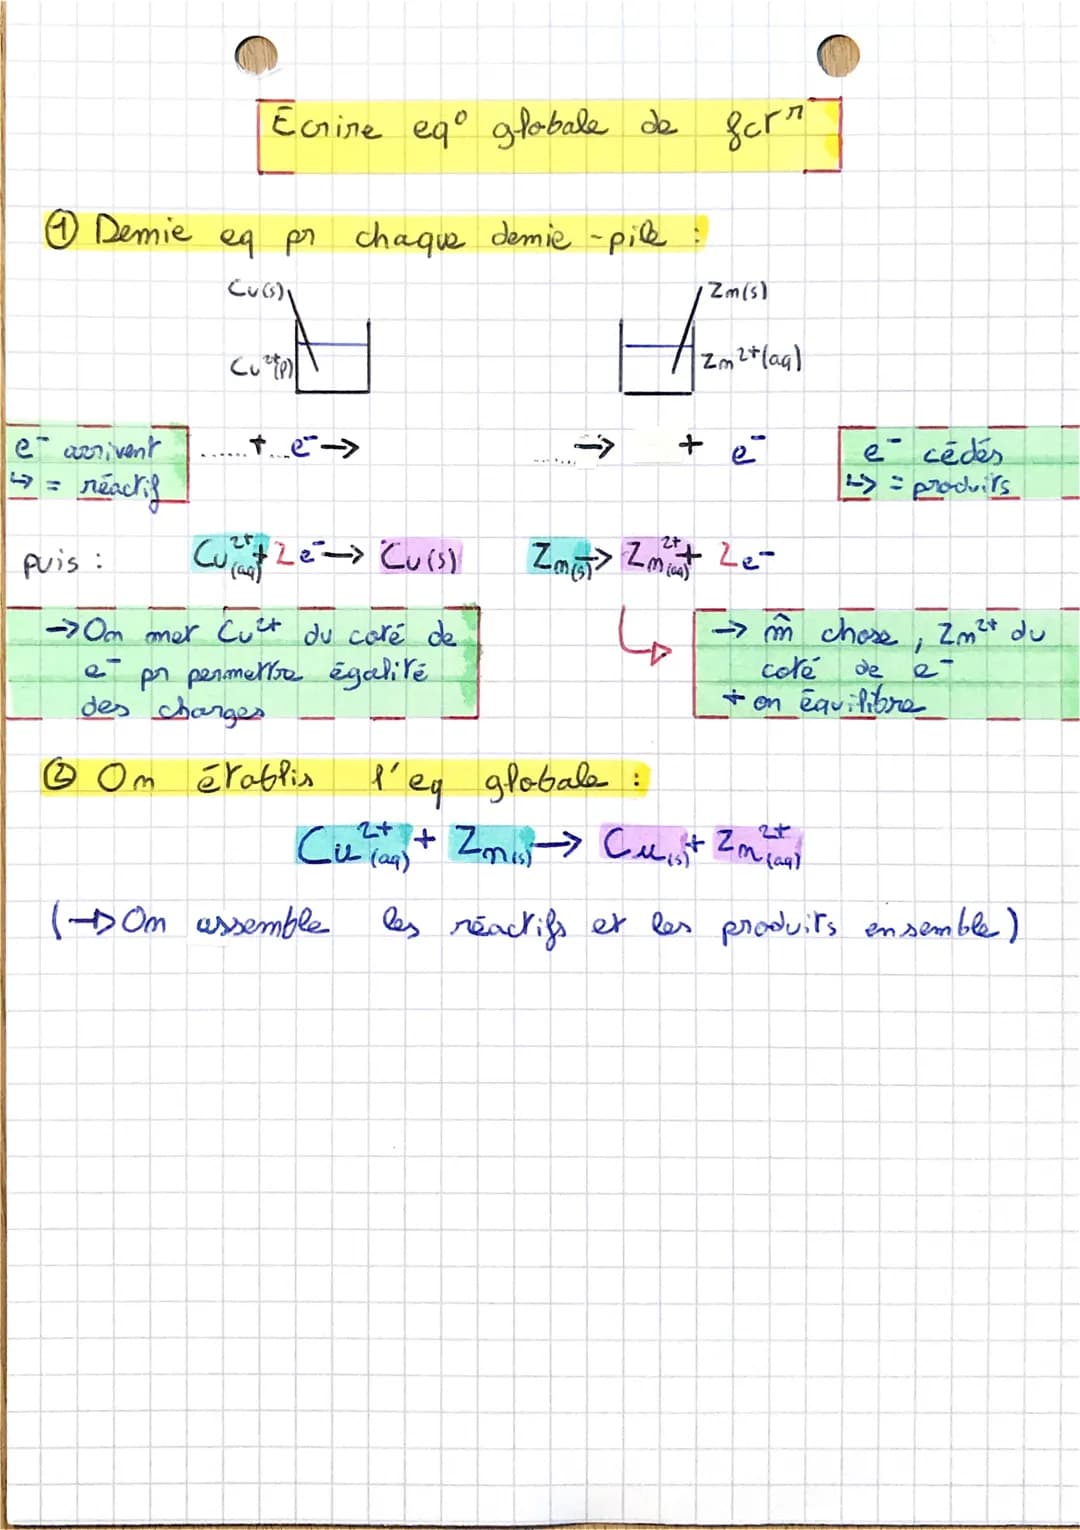 Ecrire eq° globale de fctⁿ
① Demie eq pr chaque demie-pile :
Cu(s) Zn(s)
Cu²⁺(p) Zn²⁺(aq)
e⁻ arrivent ......+...e⁻→ ......→ + e⁻ e⁻ cédés
↳ = réactif ↳ = produits
puis : Cu²⁺(aq) + 2e⁻ → Cu(s) Zn(s) → Zn²⁺(aq) + 2e⁻
→ On met Cu²⁺ du coté de
e⁻ pr permettre égalité
des charges
→ m̂ chose, Zn²⁺ du
coté de e⁻
+ on équilibre
② On établis l'eq globale :
Cu²⁺(aq) + Zn(s) → Cu(s) + Zn²⁺(aq)
(→ On assemble les réactifs et les produits ensemble)